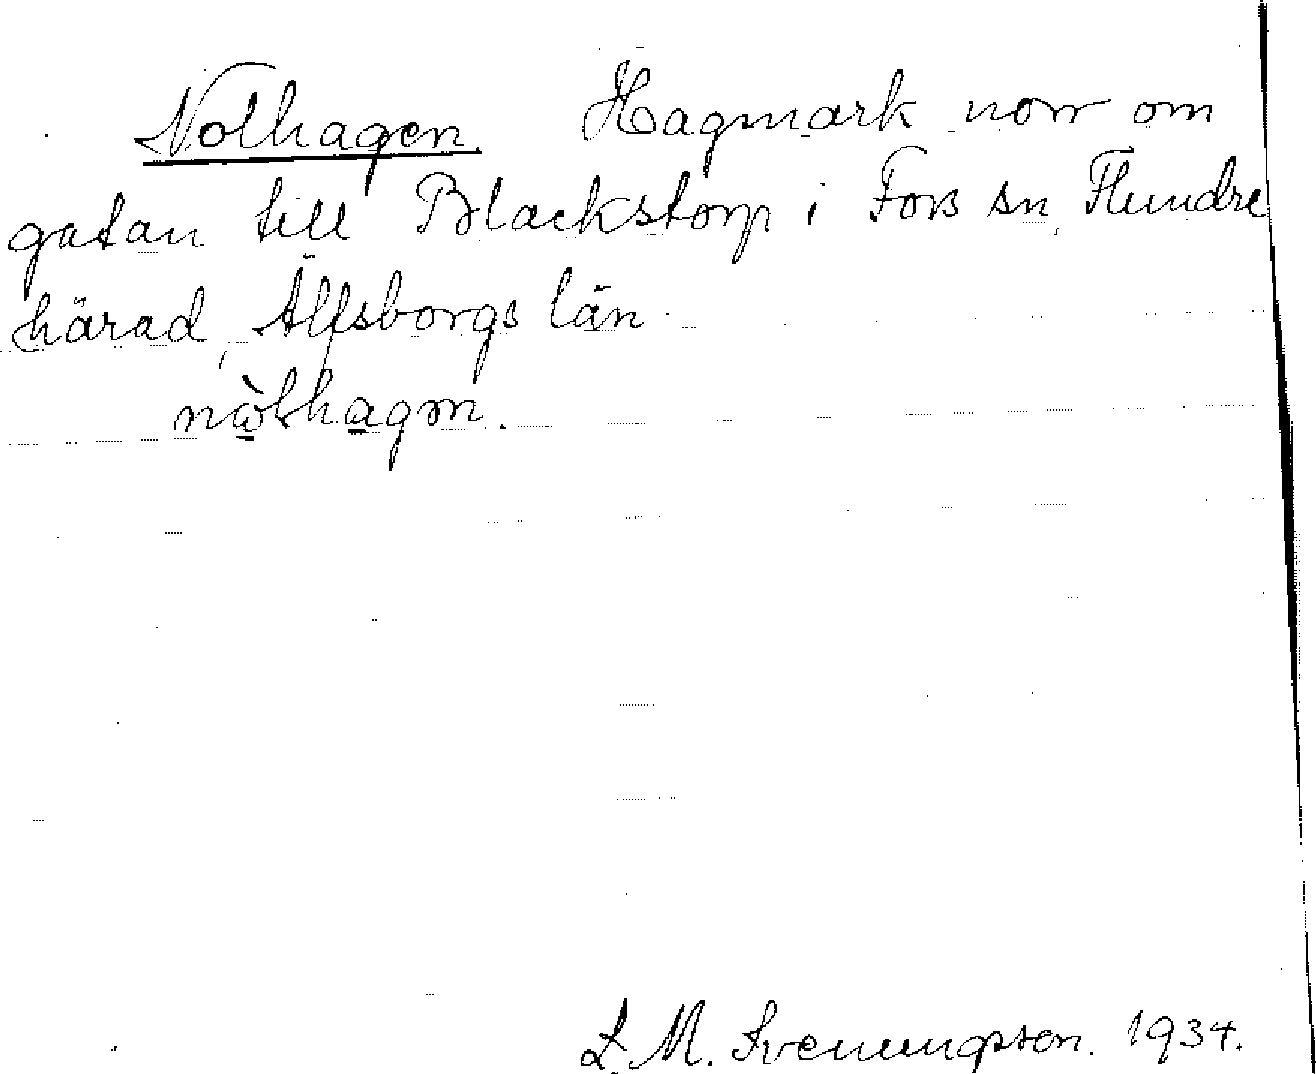 Nolhagen. Hagmark norr om
gatan till Blackstorp i Fors sn, Flundre
härad, Älfsborgs län
nòlhagm.
L. M. Svenungsson. 1934.